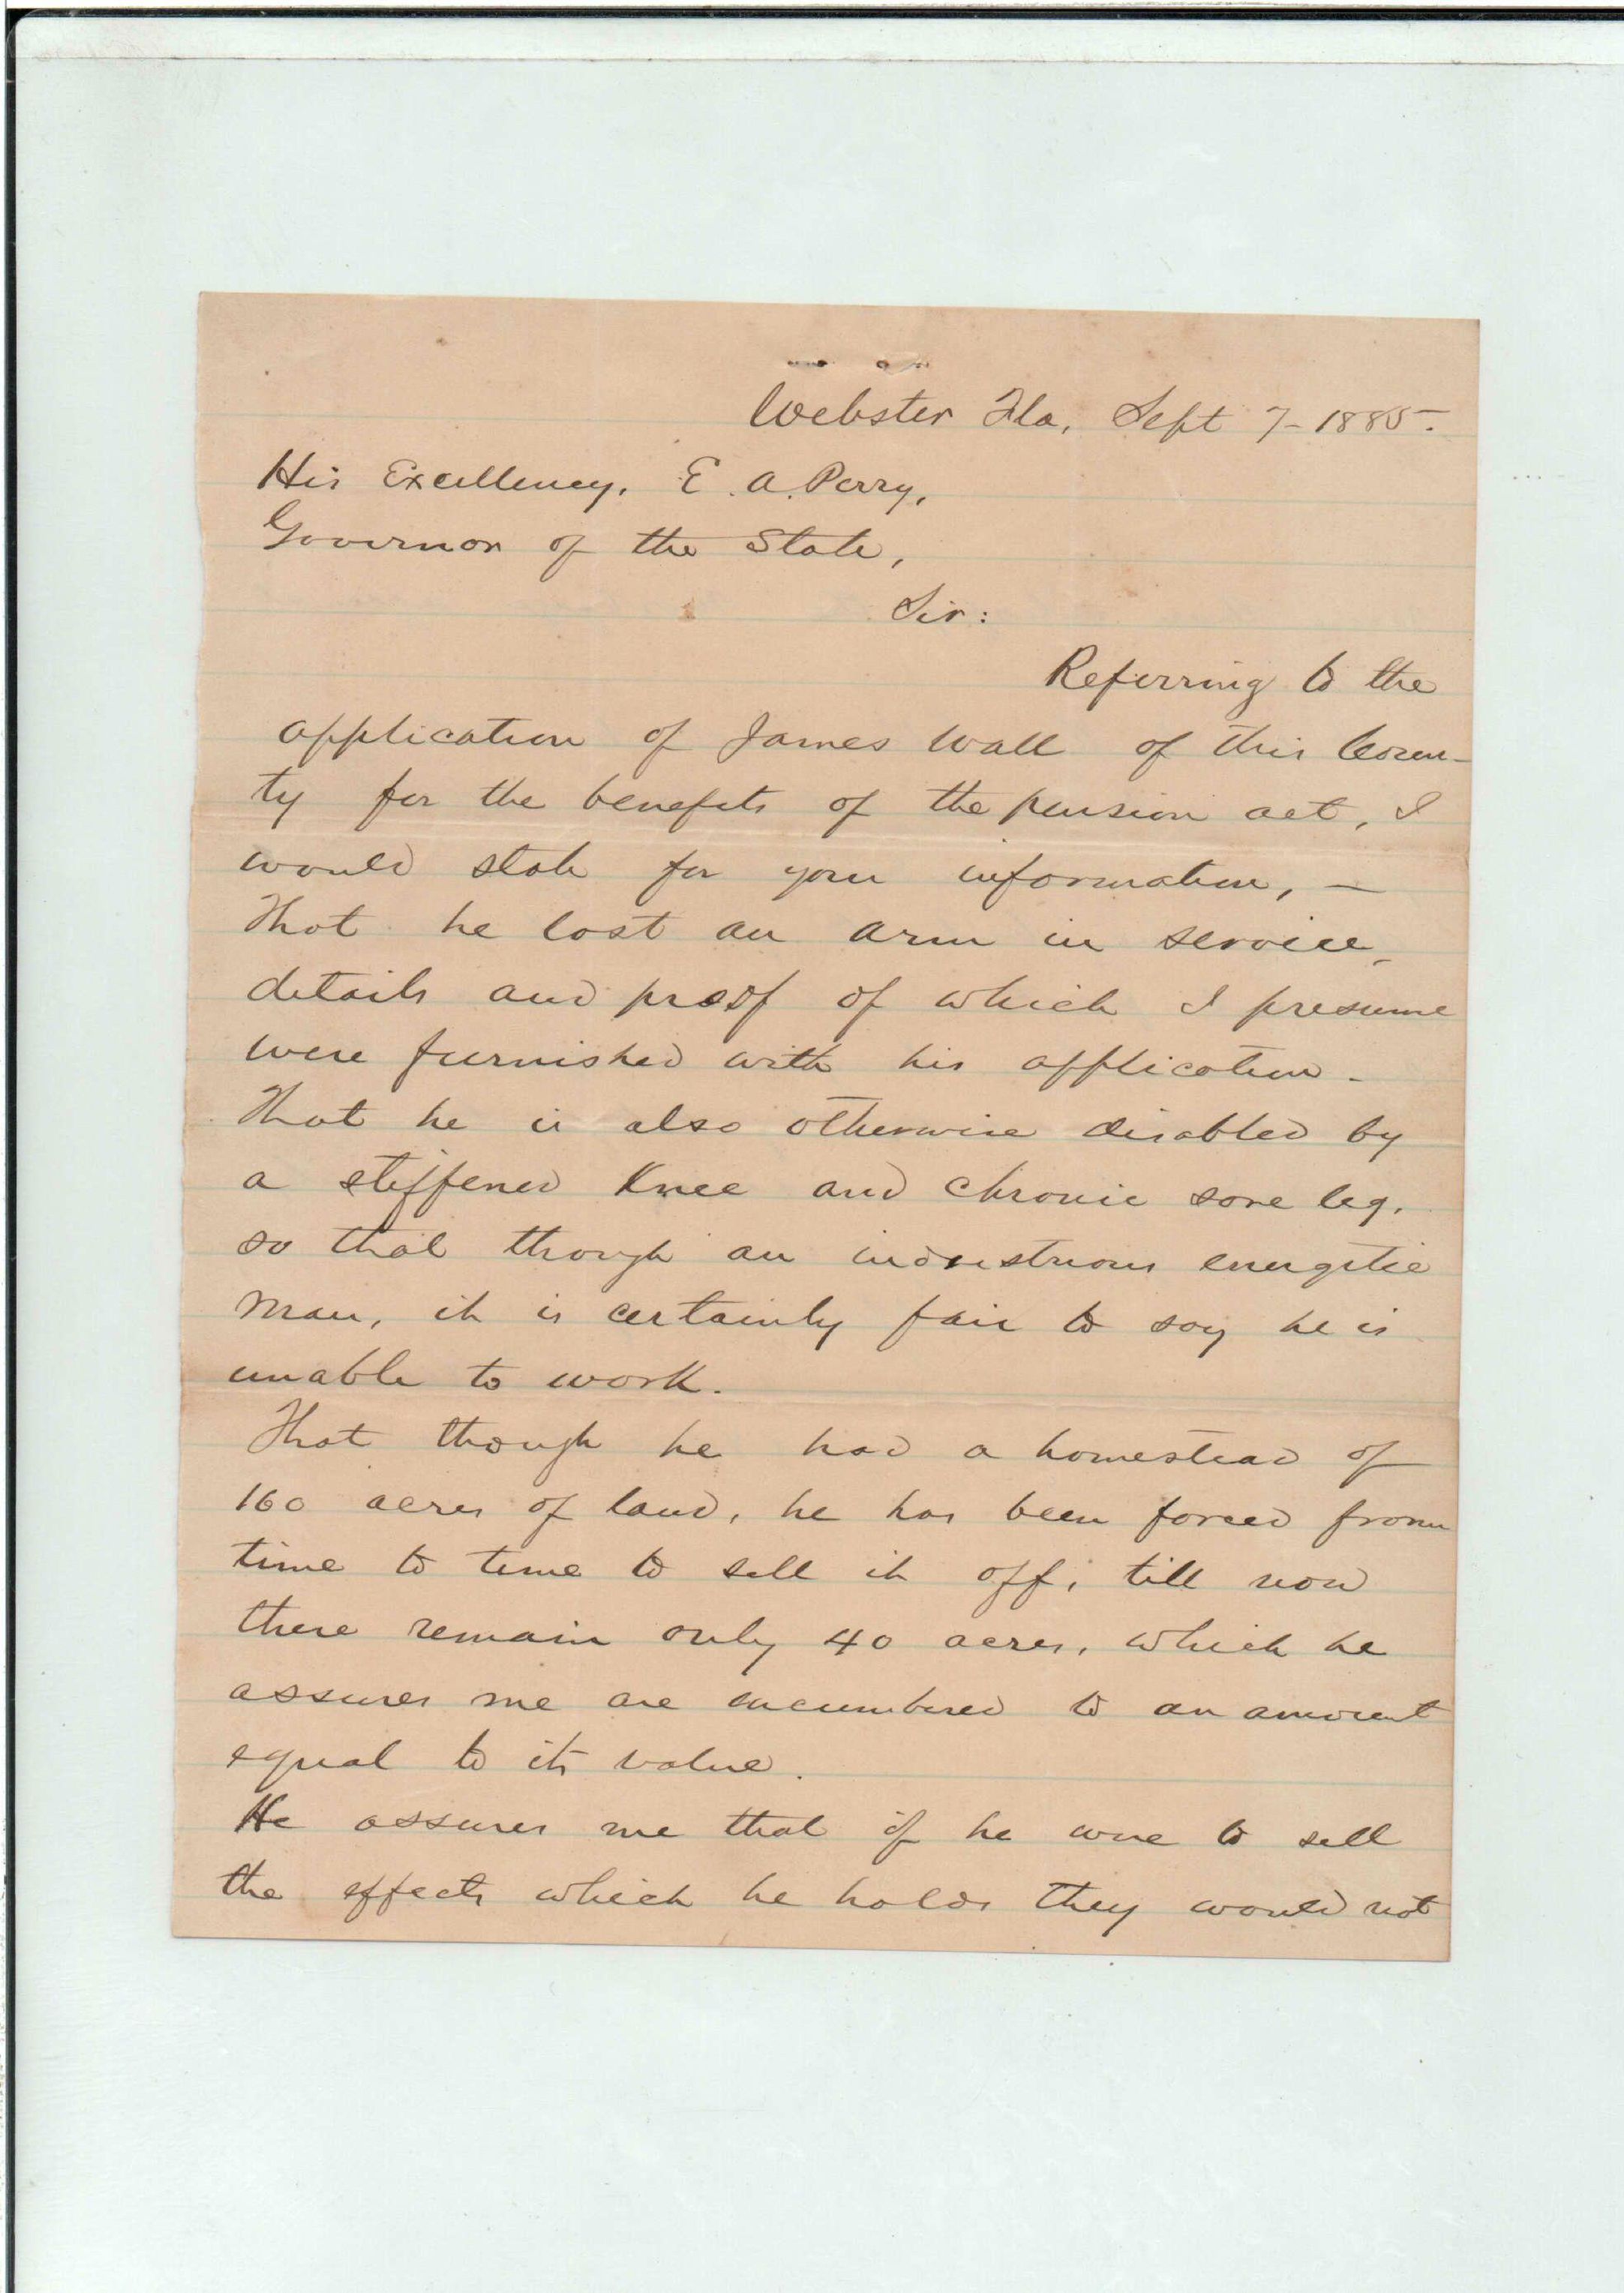 Webster Fla, Sept 7-1885.
His Excellency, E. A. Perry,
Governor of the State,
Sir:
Referring to the
application of James Wall of this Coun-
ty for the benefits of the pension act, I
would state for your information, —
That he lost an arm in service,
details and proof of which I presume
were furnished with his application.
That he is also otherwise disabled by
a stiffened knee and chronic sore leg,
so that though an industrious energetic
man, it is certainly fair to say he is
unable to work.
That though he had a homestead of
160 acres of land, he has been forced from
time to time to sell it off, till now
there remain only 40 acres, which he
assures me are encumbered to an amount
equal to its value.
He assures me that if he were to sell
the effects which he holds they would not